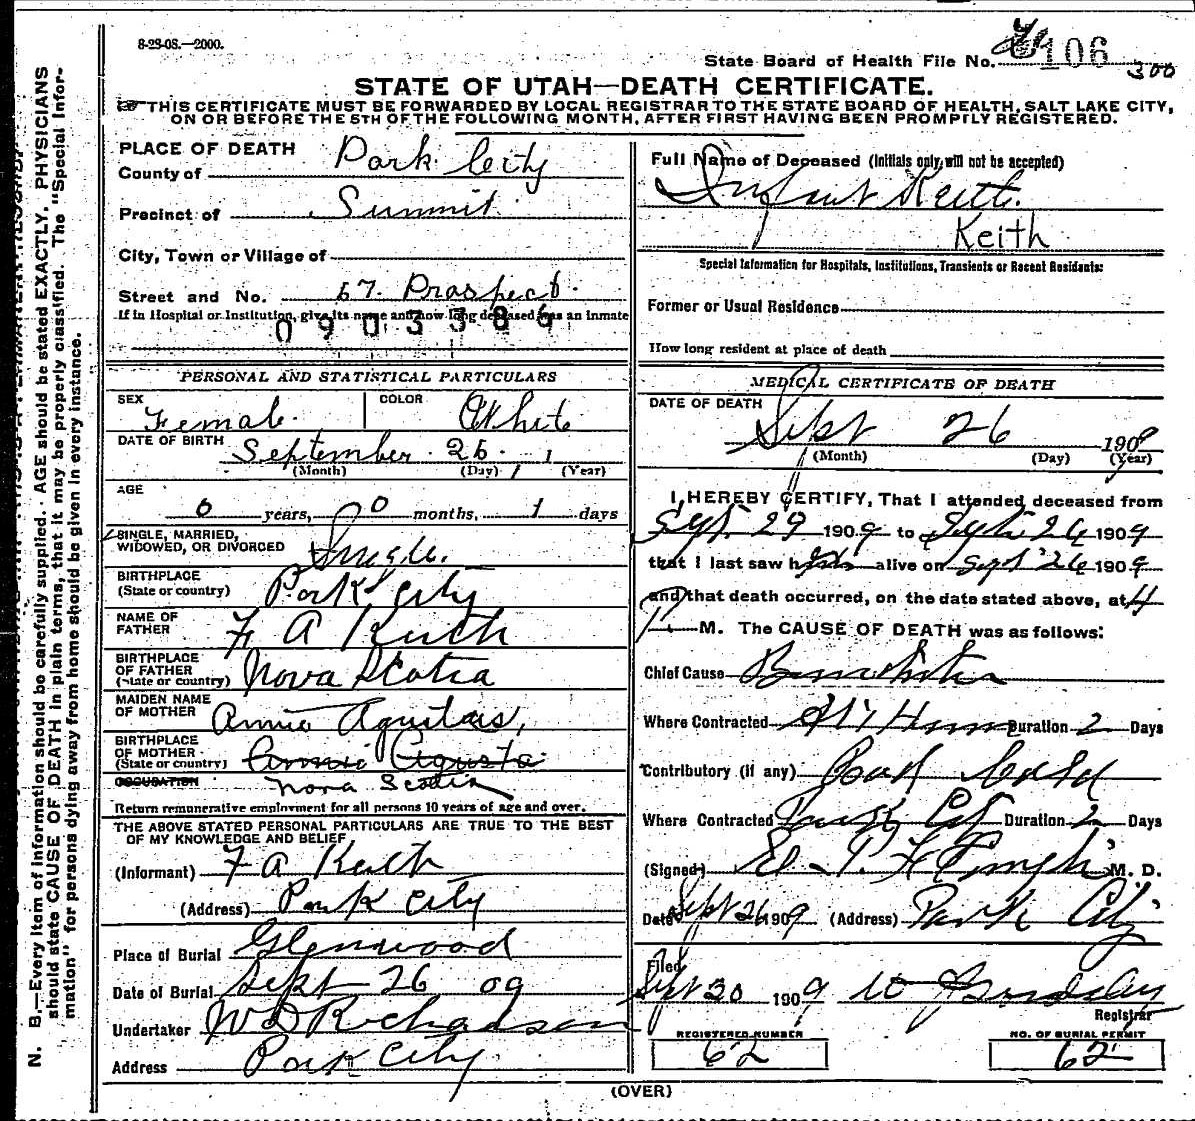 8-23-08.—2000.
State Board of Health File No. 106
300
STATE OF UTAH—DEATH CERTIFICATE.
THIS CERTIFICATE MUST BE FORWARDED BY LOCAL REGISTRAR TO THE STATE BOARD OF HEALTH, SALT LAKE CITY,
ON OR BEFORE THE 5TH OF THE FOLLOWING MONTH, AFTER FIRST HAVING BEEN PROMPTLY REGISTERED.
N. B.—Every item of information should be carefully supplied. AGE should be stated EXACTLY. PHYSICIANS
should state CAUSE OF DEATH in plain terms, that it may be properly classified. The "Special Infor-
mation" for persons dying away from home should be given in every instance.
PLACE OF DEATH
County of Park City
Precinct of Summit
City, Town or Village of
Street and No. 57. Prospect.
If in Hospital or Institution, give its name and how long deceased was an inmate
0903386
PERSONAL AND STATISTICAL PARTICULARS
SEX Female. COLOR White
DATE OF BIRTH September 26 1
(Month) (Day) (Year)
AGE
0 years, 0 months, 1 days
SINGLE, MARRIED,
WIDOWED, OR DIVORCED Single.
BIRTHPLACE
(State or country) Park City
NAME OF
FATHER F A Keith
BIRTHPLACE
OF FATHER
(State or country) Nova Scotia
MAIDEN NAME
OF MOTHER Annie
BIRTHPLACE
OF MOTHER
(State or country) Annie Agusta
OCCUPATION Nova Scotia
Return remunerative employment for all persons 10 years of age and over.
THE ABOVE STATED PERSONAL PARTICULARS ARE TRUE TO THE BEST
OF MY KNOWLEDGE AND BELIEF
(Informant) F A Keith
(Address) Park City
Place of Burial Glenwood
Date of Burial Sept 26 09
Undertaker W D Richardson
Address Park City
Full Name of Deceased (Initials only, will not be accepted)
Infant Keith.
Keith
Special Information for Hospitals, Institutions, Transients or Recent Residents:
Former or Usual Residence
How long resident at place of death
MEDICAL CERTIFICATE OF DEATH
DATE OF DEATH
Sept 26 1909
(Month) (Day) (Year)
I, HEREBY CERTIFY, That I attended deceased from
Sept. 1909 to Sept 26 1909
that I last saw h alive on Sept 26 1909
and that death occurred, on the date stated above, at 4
P M. The CAUSE OF DEATH was as follows:
Chief Cause Bronchitis
Where Contracted At Home Duration 2 Days
Contributory (if any) Bad Cold
Where Contracted Park City Duration 2 Days
(Signed) M. D.
Date Sept 26 1909 (Address) Park City
Filed
Sept 30 1909
Registrar
REGISTERED NUMBER
62
NO. OF BURIAL PERMIT
62
(OVER)